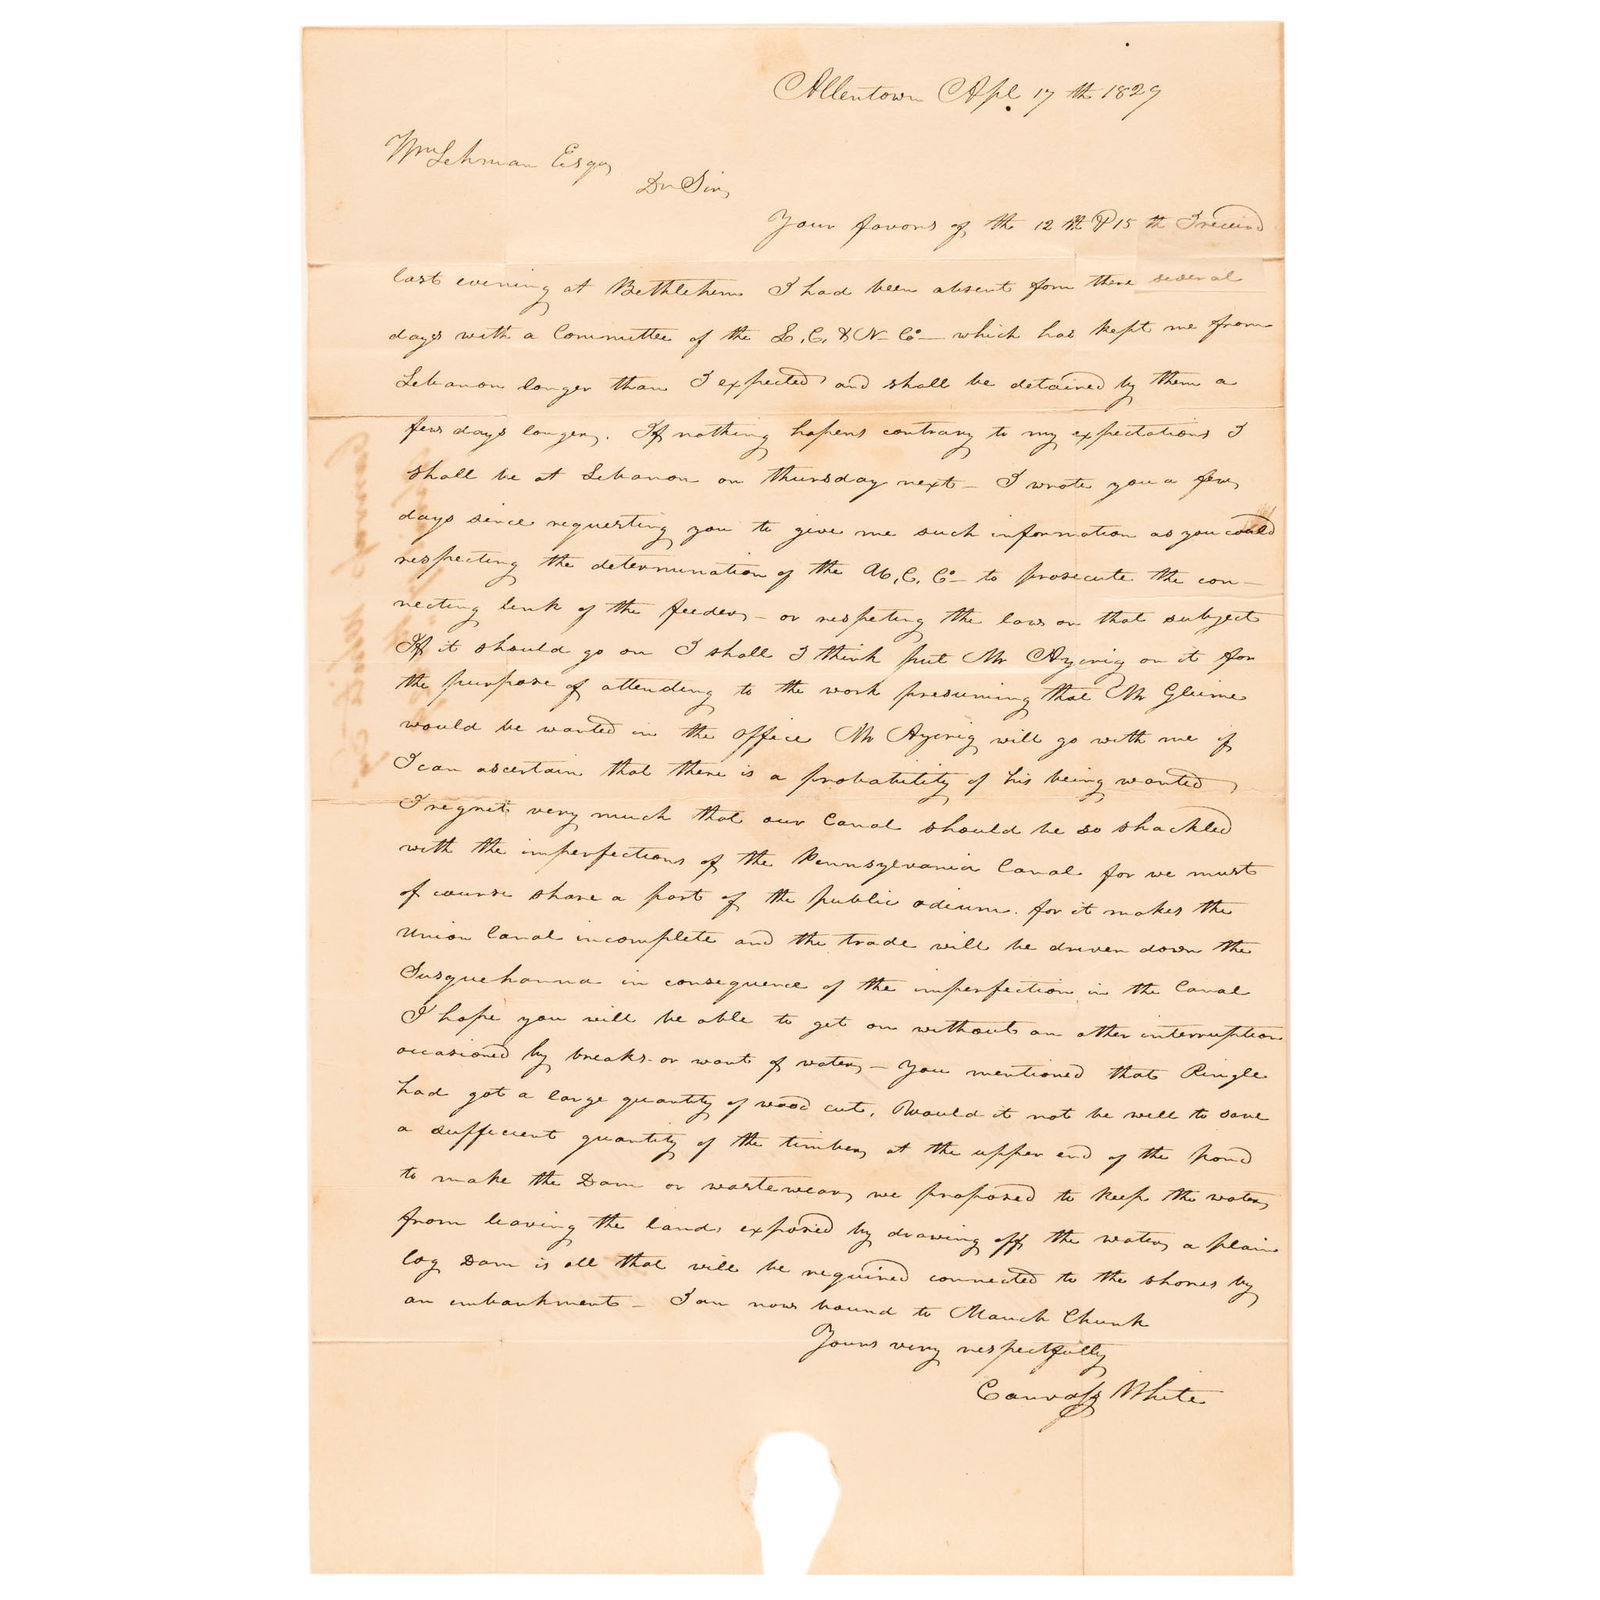 Allentown Apl. 17th 1829
Wm Lehman Esqr
Dr Sir,
Your favors of the 12th & 15th I receivd
last evening at Bethlehem I had been absent from there several
days with a Committee of the L. C. & N. Co – which has kept me from
Lebanon longer than I expected and shall be detained by them a
few days longer. If nothing hapens contrary to my expectations I
shall be at Lebanon on thursday next – I wrote you a few
days since requesting you to give me such information as you could
respecting the determination of the U. C. Co – to prosecute the con-
necting link of the feeder – or respeting the law on that subject
If it should go on I shall I think put Mr Aycrig on it for
the purpose of attending to the work presuming that Mr Gleime
would be wanted in the office Mr Aycrig will go with me if
I can ascertain that there is a probability of his being wanted
I regret very much that our Canal should be so shackled
with the imperfections of the Pennsylvania Canal for we must
of course share a part of the public odium. for it makes the
Union Canal incomplete and the trade will be driven down the
Susquehanna in consequence of the imperfection in the Canal
I hope you will be able to get on without an other interruption
occasioned by breaks or want of water – You mentioned that Ringle
had got a large quantity of wood cut. Would it not be well to save
a sufficient quantity of the timber at the upper end of the pond
to make the Dam or waste wear we proposed to keep the water
from leaving the lands exposed by drawing off the water a plain
log Dam is all that will be required connected to the shores by
an embankment – I am now bound to Mauch Chunk
Yours very respectfully
Canvass White